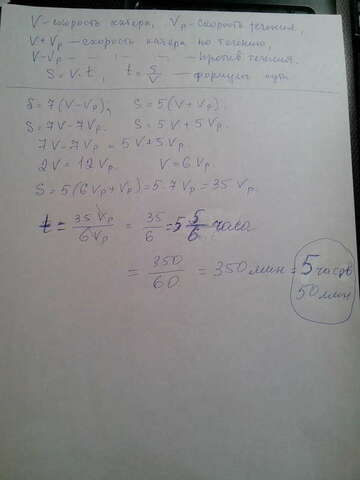 V - скорость катера, Vр - скорость течения,
V+Vр — скорость катера по течению,
V-Vр — - ' - - ' - против течения.
S = V·t, t = S/V — формулы пути.
S = 7(V-Vр); S = 5(V+Vр);
S = 7V-7Vр. S = 5V + 5Vр.
7V-7Vр = 5V+5Vр.
2V = 12Vр. V = 6Vр
S = 5(6Vр+Vр) = 5·7Vр = 35Vр.
t = 35Vр/6Vр = 35/6 = 5 5/6 часа
= 350/60 = 350 мин = 5 часов
50 мин